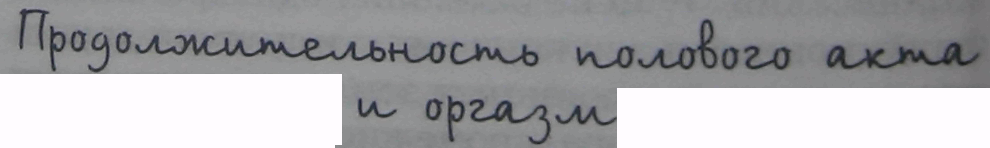 Продолжительность полового акта
и оргазм